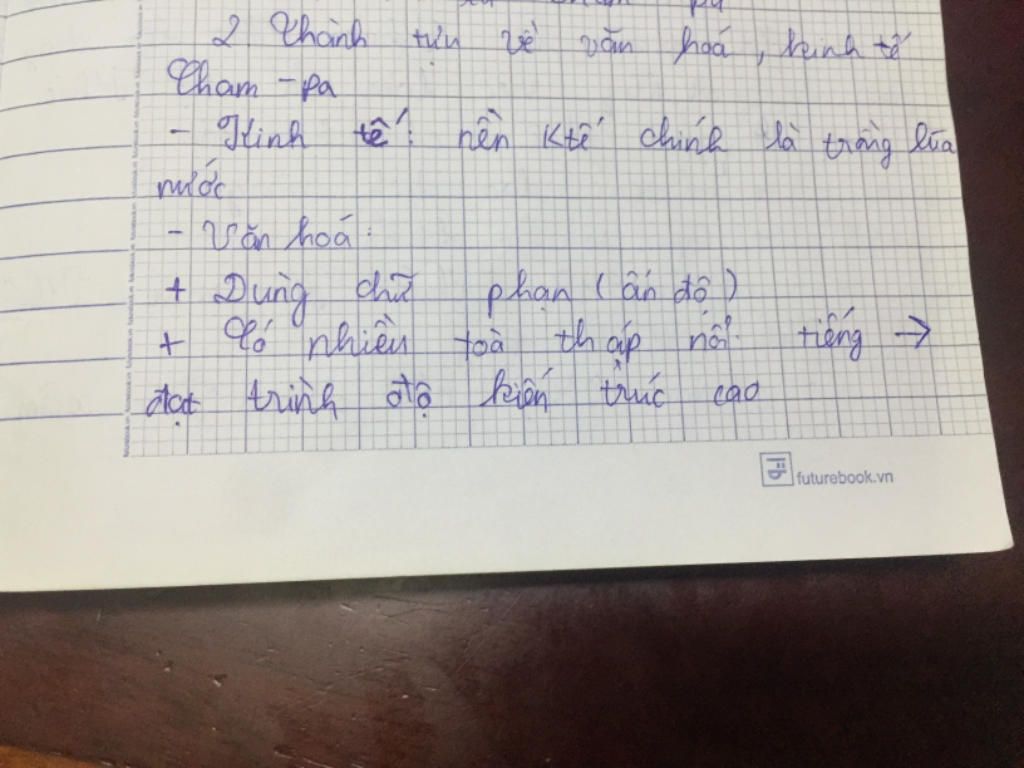 2 Thành tựu về văn hoá, kinh tế
Cham-pa
- Kinh tế: nền ktế chính là trồng lúa
nước
- Văn hoá:
+ Dùng chữ phạn (ấn độ)
+ Có nhiều toà tháp nổi tiếng →
đạt trình độ kiến trúc cao
futurebook.vn